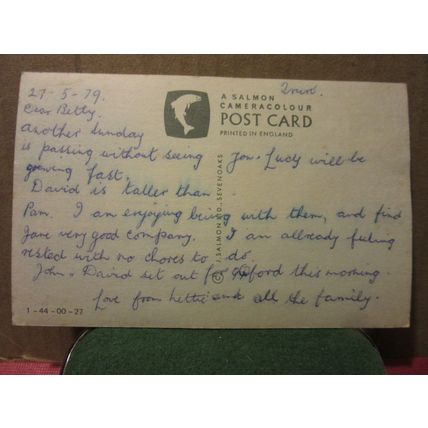 27-5-79.
Truro.
A SALMON
CAMERACOLOUR
POST CARD
PRINTED IN ENGLAND
Dear Betty,
Another Sunday
is passing without seeing you. Lucy will be
growing fast.
David is taller than
Pam. I am enjoying being with them, and find
Jane very good company. I am allready fuling
rested with no chores to do.
John & David set out for Oxford this morning.
Love from Lettie and all the family.
© J. SALMON LTD., SEVENOAKS
1-44-00-27